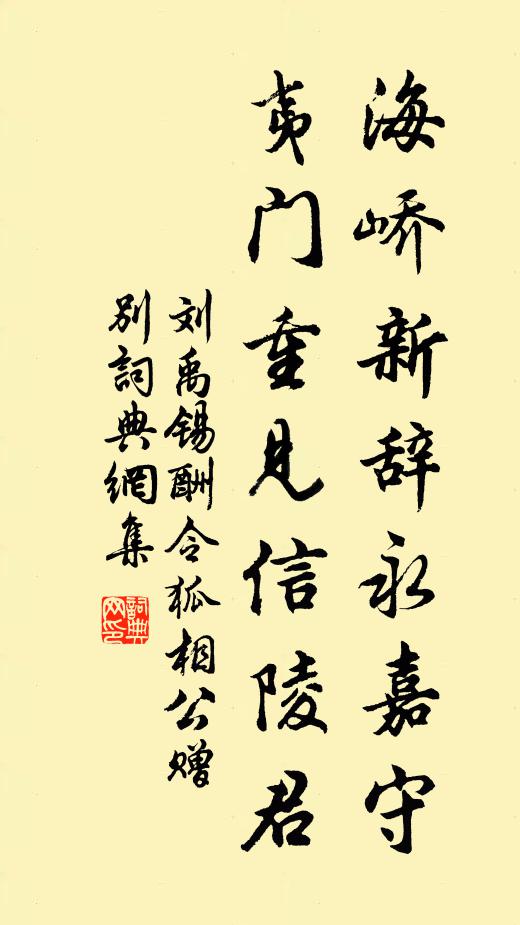 海峤新辞永嘉守
夷门重见信陵君
刘禹锡酬令狐相公赠
别詞典網集
詞典
网印